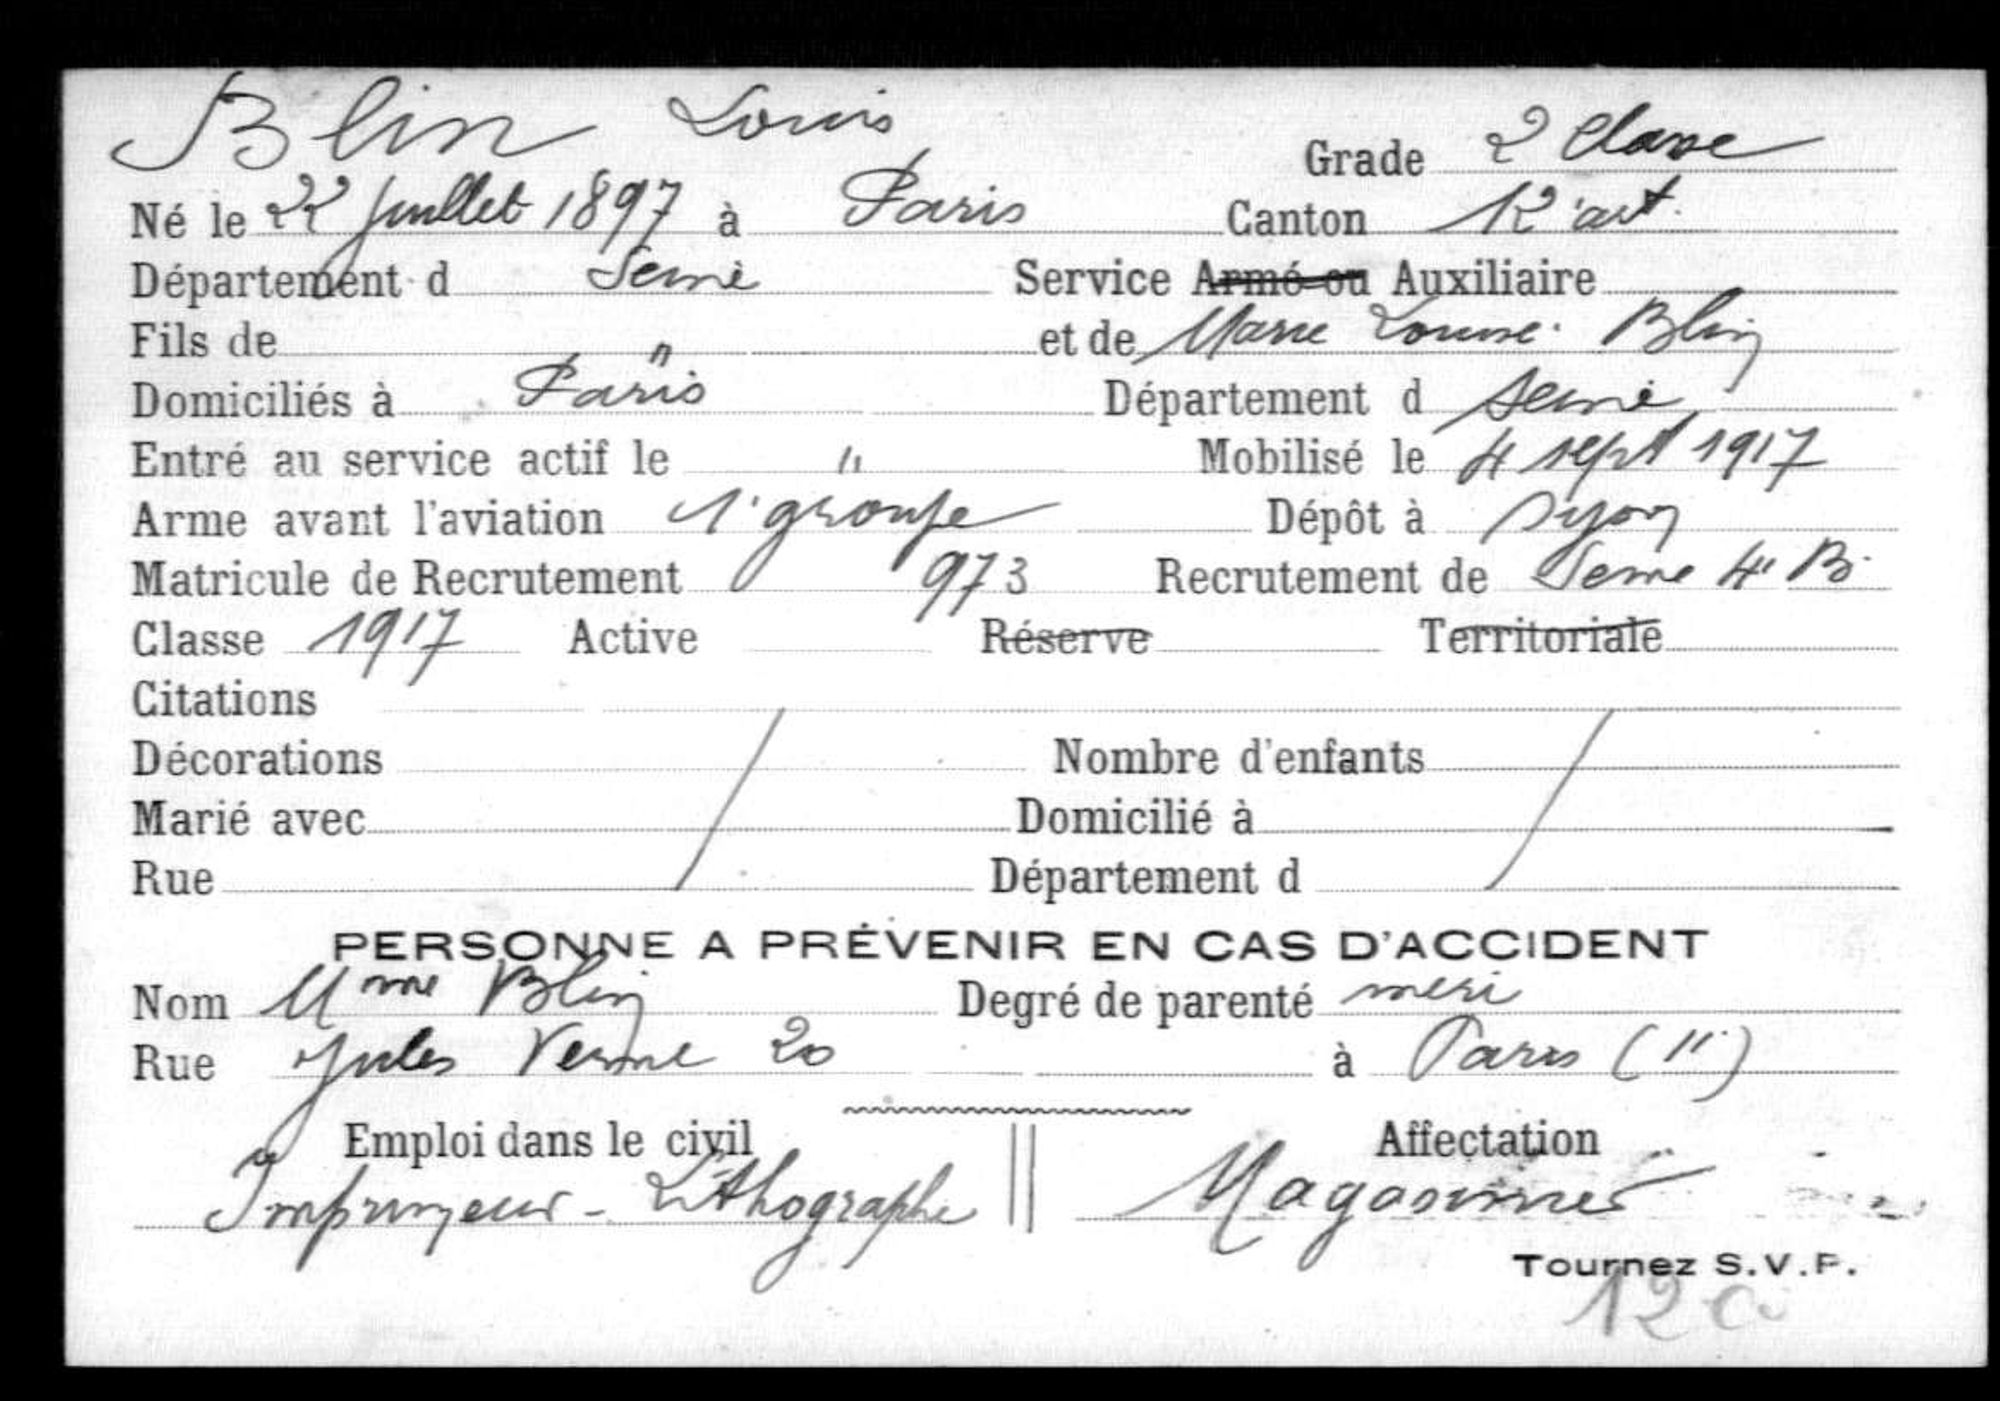 Blin Louis Grade 2 Classe
Né le 22 Juillet 1897 à Paris Canton 12e art.
Département d Seine Service Armé ou Auxiliaire
Fils de " et de Marie Louise Blin
Domiciliés à Paris Département d Seine
Entré au service actif le " Mobilisé le 4 sept 1917
Arme avant l'aviation 1er groupe Dépôt à Dijon
Matricule de Recrutement 973 Recrutement de Seine 4e B.
Classe 1917 Active Réserve Territoriale
Citations
Décorations Nombre d'enfants
Marié avec Domicilié à
Rue Département d
PERSONNE A PRÉVENIR EN CAS D'ACCIDENT
Nom Mme Blin Degré de parenté mère
Rue Jules Verne 20 à Paris (11e)
Emploi dans le civil Affectation
Imprimeur - Lithographe Magasinier
Tournez S.V.P.